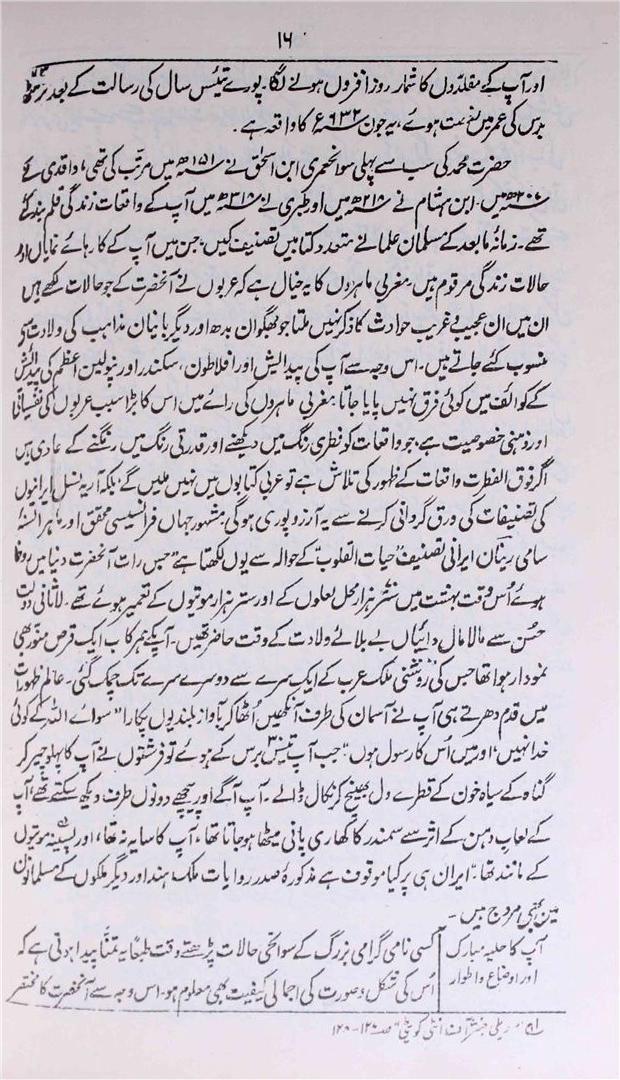 ۱۶
اور آپ کے مقلدوں کا شمار روز افزوں ہونے لگا۔ پورے تیئیس سال کی رسالت کے بعد
برس کی عمر میں فوت ہوئے، یہ جون ۶۳۲ء کا واقعہ ہے۔
حضرت محمد کی سب سے پہلی سوانحعمری ابن اسحٰق نے ۱۵۱ھ میں مرتب کی تھی، واقدی نے
۲۰۷ھ میں۔ ابن ہشام نے ۲۱۸ھ میں اور طبری نے ۳۱۸ھ میں آپ کے واقعات زندگی قلمبند کئے
تھے۔ زمانۂ مابعد کے مسلمان علما نے متعدد کتابیں تصنیف کیں، جن میں آپ کے کارہائے نمایاں اور
حالات زندگی مرقوم ہیں۔ مغربی ماہروں کا یہ خیال ہے کہ عربوں نے آنحضرت کے جو حالات لکھے ہیں
ان میں ان عجیب و غریب حوادث کا ذکر نہیں ملتا جو بھگوان بدھ اور دیگر بانیان مذاہب کی ولادت سے
منسوب کئے جاتے ہیں۔ اس وجہ سے آپ کی پیدائش اور افلاطون، سکندر اور نپولین اعظم کی پیدائش
کے کوائف میں کوئی فرق نہیں پایا جاتا۔ مغربی ماہروں کی رائے میں اس کا بڑا سبب عربوں کی نفسیاتی
اور ذہنی خصوصیت ہے، جو واقعات کو نظری رنگ میں دیکھنے اور قدرتی رنگ میں رنگنے کے عادی ہیں
اگر فوق الفطرت واقعات کے ظہور کی تلاش ہے تو عربی کتابوں میں نہیں ملیں گے، بلکہ آریہ نسل ایرانیوں
کی تصنیفات کی ورق گردانی کرنے سے یہ آرزو پوری ہوگی۔ مشہور جہاں فرانسیسی محقق اور ماہر السنۂ
سامی رینان ایرانی تصنیف "حیات القلوب" کے حوالہ سے یوں لکھتا ہے "جس رات آنحضرت دنیا میں رونما
ہوئے اُس وقت بہشت میں ستر ہزار محل لعلوں کے اور ستر ہزار موتیوں کے تعمیر ہوئے تھے۔ لاثانی دولت
حُسن سے مالا مال دائیاں بے بلائے ولادت کے وقت حاضر تھیں۔ آپکے ہمرکاب ایک قرص منور بھی
نمودار ہوا تھا جس کی روشنی ملک عرب کے ایک سرے سے دوسرے سرے تک چمک گئی۔ عالم ظہورات
میں قدم دھرتے ہی آپ نے آسمان کی طرف آنکھیں اُٹھا کر بآواز بلند یوں پکارا "سوائے اللہ کے کوئی
خدا نہیں، اور میں اُس کا رسول ہوں"۔ جب آپ تین برس کے ہوئے تو فرشتوں نے آپ کا پہلو چیر کر
گناہ کے سیاہ خون کے قطرے دل بھینچ کر نکال ڈالے۔ آپ آگے اور پیچھے دونوں طرف دیکھ سکتے تھے، آپ
کے لعاب دہن کے اثر سے سمندر کا کھاری پانی میٹھا ہو جاتا تھا، آپ کا سایہ نہ تھا، اور پسینہ موتیوں
کے مانند تھا"۔ ایران ہی پر کیا موقوف ہے مذکورۂ صدر روایات ملک ہند اور دیگر ملکوں کے مسلمانوں
میں بھی مروج ہیں۔
آپ کا حلیہ مبارک
اور اوضاع و اطوار
کسی نامی گرامی بزرگ کے سوانحی حالات پڑھتے وقت طبعاً یہ تمنّا پیدا ہوتی ہے کہ
اُس کی شکل و صورت کی اجمالی کیفیت بھی معلوم ہو۔ اس وجہ سے آنحضرت کا مختصر
ریلی جنز آف انٹی کویٹی" صـ ۱۲۸-۱۴۸